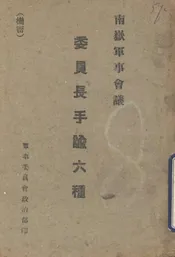 南嶽軍事會議
委員長手諭六種
軍事委員會政治部印